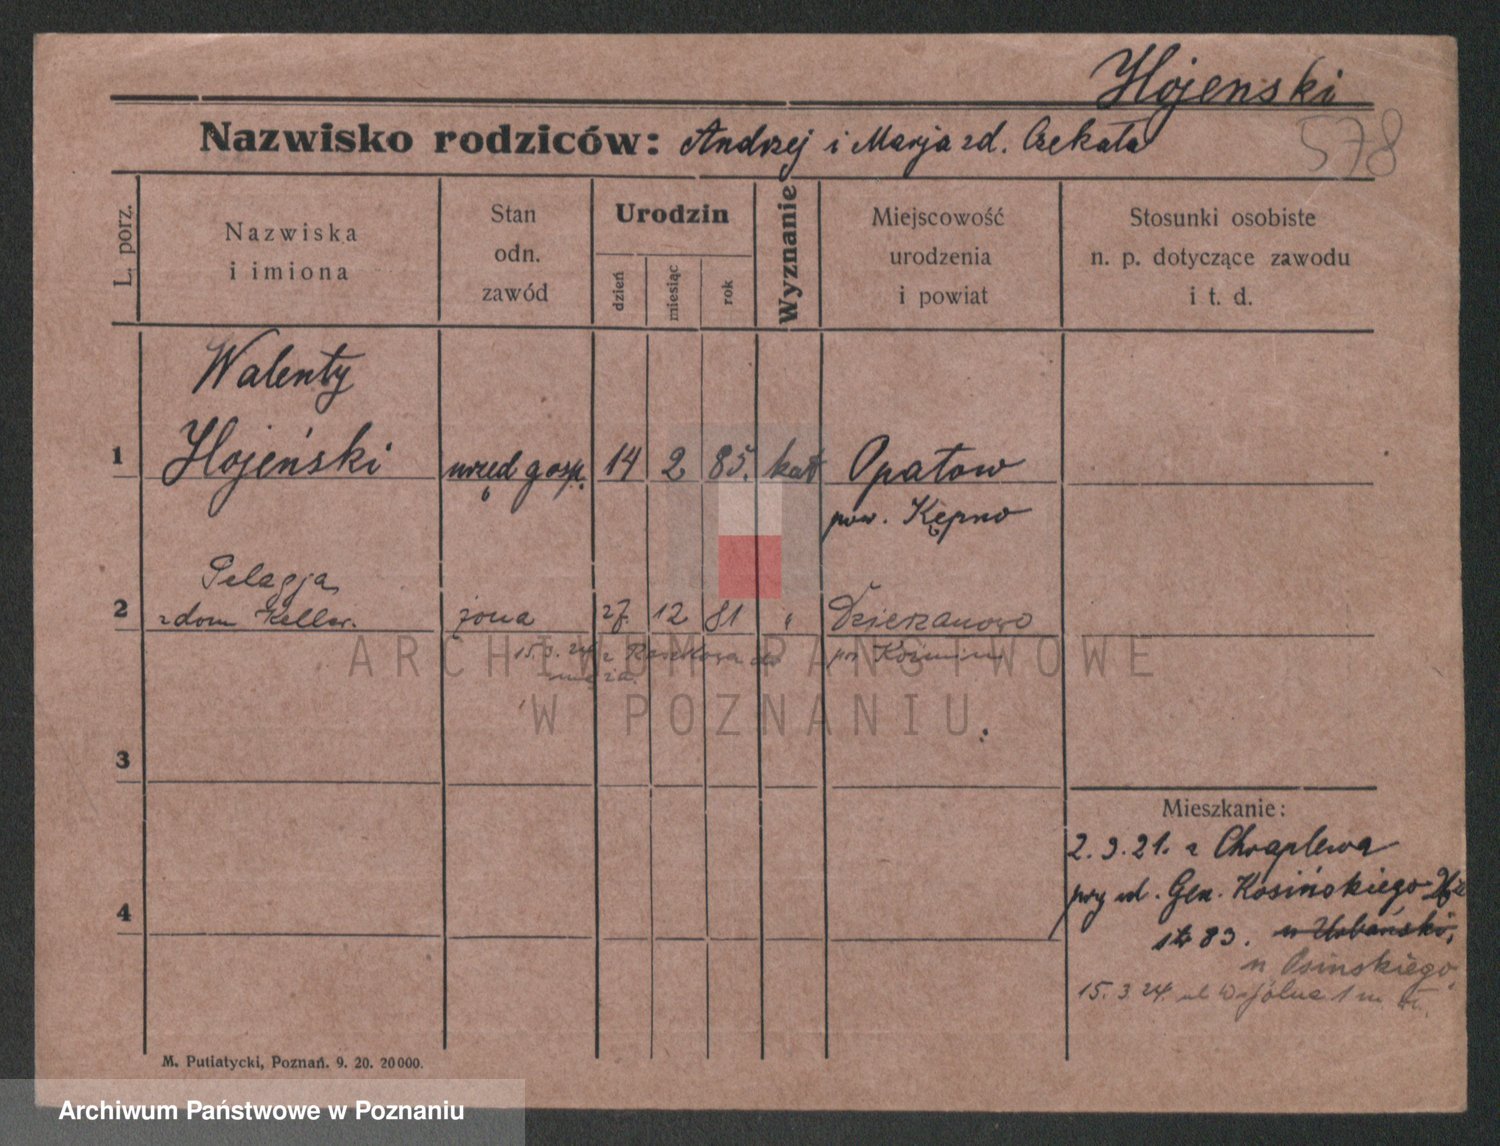 Hojenski
Nazwisko rodziców: Andrzej i Marja zd. Czekała
578
L. porz.
Nazwiska
i imiona
Stan
odn.
zawód
Urodzin
dzień
miesiąc
rok
Wyznanie
Miejscowość
urodzenia
i powiat
Stosunki osobiste
n. p. dotyczące zawodu
i t. d.
Walenty
1 Hojeński urzęd gosp. 14 2 85. kat Opatow
pow. Kępno
Pelagja
2 z dom Keller. żona 27. 12 81 " Dzierzanowo
15.3.24 z Raszkowa do pow Koźmin
męża.
3
4
Mieszkanie:
2.3.21. z Chraplewa
przy ul. Gen. Kosińskiego 26
str 83. u Urbański,
u Osinskiego
15.3.24. ul Wspólna 1 m.
M. Putiatycki, Poznań. 9. 20. 20000.
ARCHIWUM PAŃSTWOWE
W POZNANIU
Archiwum Państwowe w Poznaniu